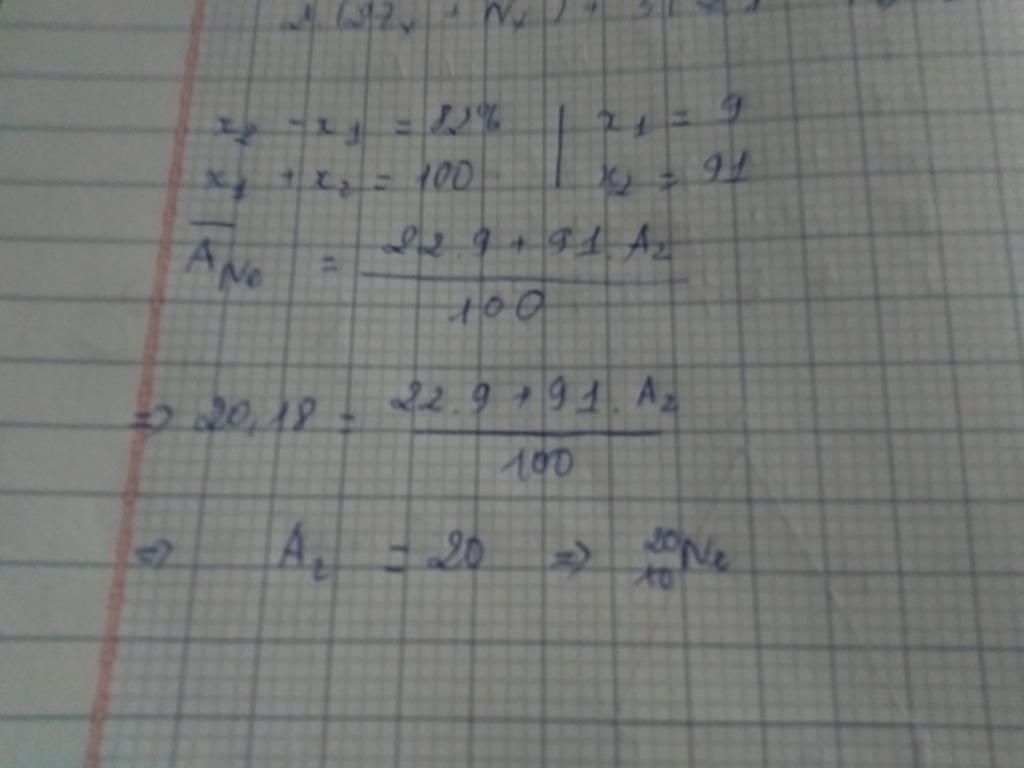 x₂ - x₁ = 82% | x₁ = 9
x₁ + x₂ = 100 | x₂ = 91
A̅_Ne = (22.9 + 91.A₂) / 100
=> 20,18 = (22.9 + 91.A₂) / 100
=> A₂ = 20 => ²⁰₁₀Ne